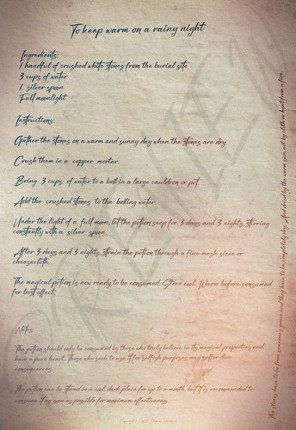 To keep warm on a rainy night
Ingredients:
1 handful of crushed white stones from the burial site
3 cups of water
1 silver spoon
Full moonlight
Instructions:
Gather the stones on a warm and sunny day when the stones are dry.
Crush them in a copper mortar.
Bring 3 cups of water to a boil in a large cauldron or pot.
Add the crushed stones to the boiling water.
Under the light of a full moon, let the potion seep for 3 days and 3 nights, stirring
constantly with a silver spoon.
After 3 days and 3 nights, strain the potion through a fine mesh sieve or
cheesecloth.
The magical potion is now ready to be consumed. Store cool. Warm before consumed
for best effect.
Notes:
This potion should only be consumed by those who truly believe in its magical properties and
have a pure heart. Those who seek to use it for selfish purposes may suffer dire
consequences.
The potion can be stored in a cool, dark place for up to a month, but it is recommended to
consume it as soon as possible for maximum effectiveness.